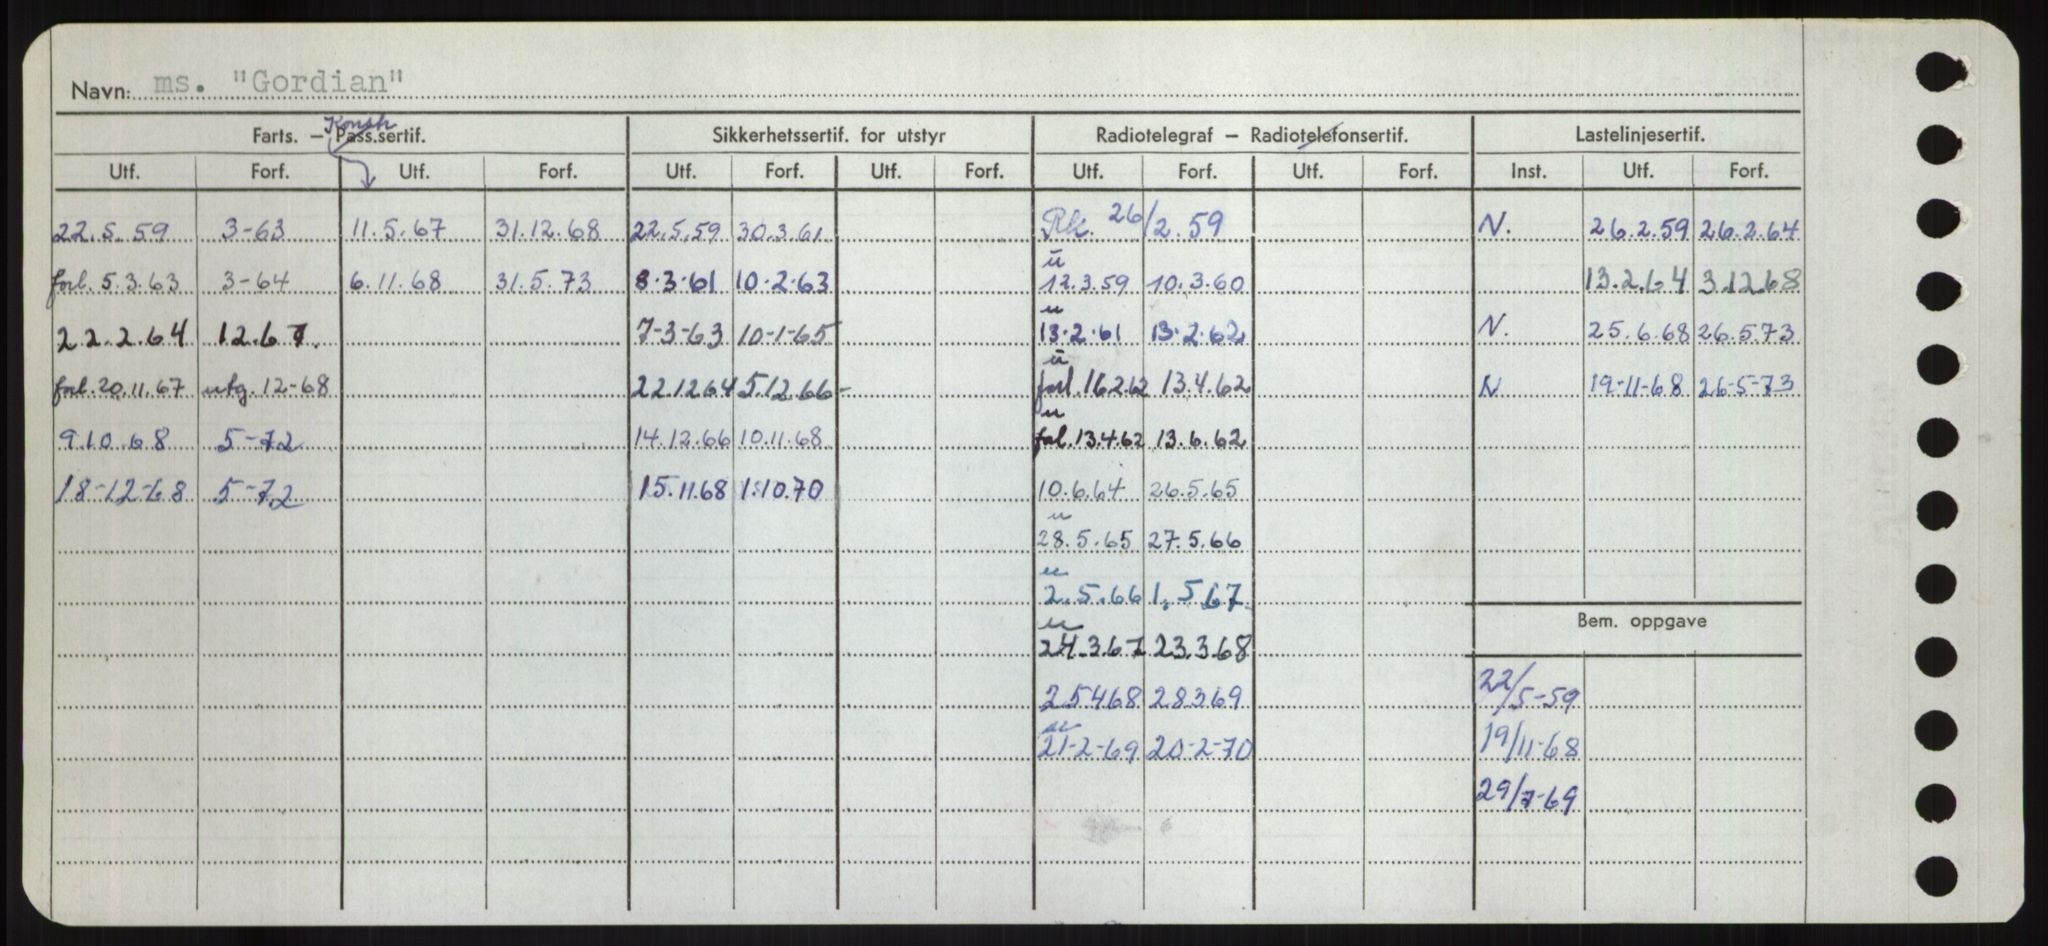 Navn: ms. "Gordian"
Konstr
Farts. – Pass.sertif. Sikkerhetssertif. for utstyr Radiotelegraf – Radiotelefonsertif. Lastelinjesertif.
Utf. Forf. Utf. Forf. Utf. Forf. Utf. Forf. Utf. Forf. Utf. Forf. Inst. Utf. Forf.
22.5.59 3-63 11.5.67 31.12.68 22.5.59 30.3.61 26/2.59 N. 26.2.59 26.2.64
u
forl. 5.3.63 3-64 6.11.68 31.5.73 8.3.61 10.2.63 12.3.59 10.3.60 13.2.64 3.12.68
u
22.2.64 12.67. 7-3-63 10-1-65 13.2.61 13.2.62 N. 25.6.68 26.5.73
u
forl. 20.11.67 utg. 12-68 22.12.64 5.12.66- forl. 16.2.62 13.4.62 N 19-11-68 26-5-73
u
9.10.68 5-72 14.12.66 10.11.68 forl. 13.4.62 13.6.62
18-12-68 5-72 15.11.68 1.10.70 10.6.64 26.5.65
u
28.5.65 27.5.66
u
2.5.66 1.5.67
Bem. oppgave
u
24.3.67 23.3.68
25468 28369 22/5-59
u
21-2-69 20-2-70 19/11-68
29/7-69